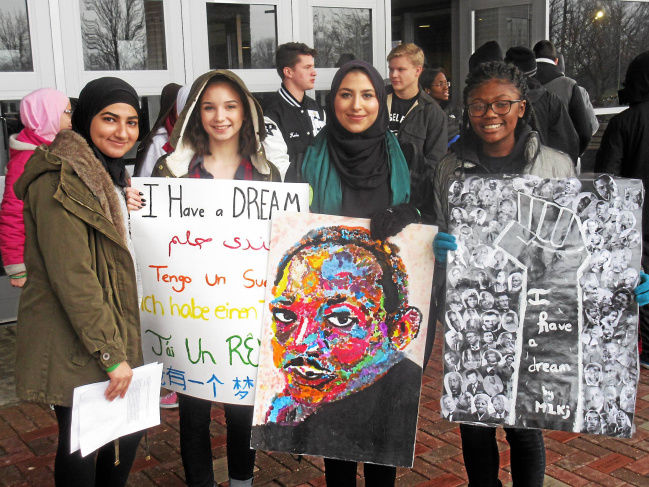 I Have a DREAM
عندي حلم
Tengo Un Su
ich habe einen
J'ai Un RÊ
有一个梦
I
have
a
dream
by
MLKj